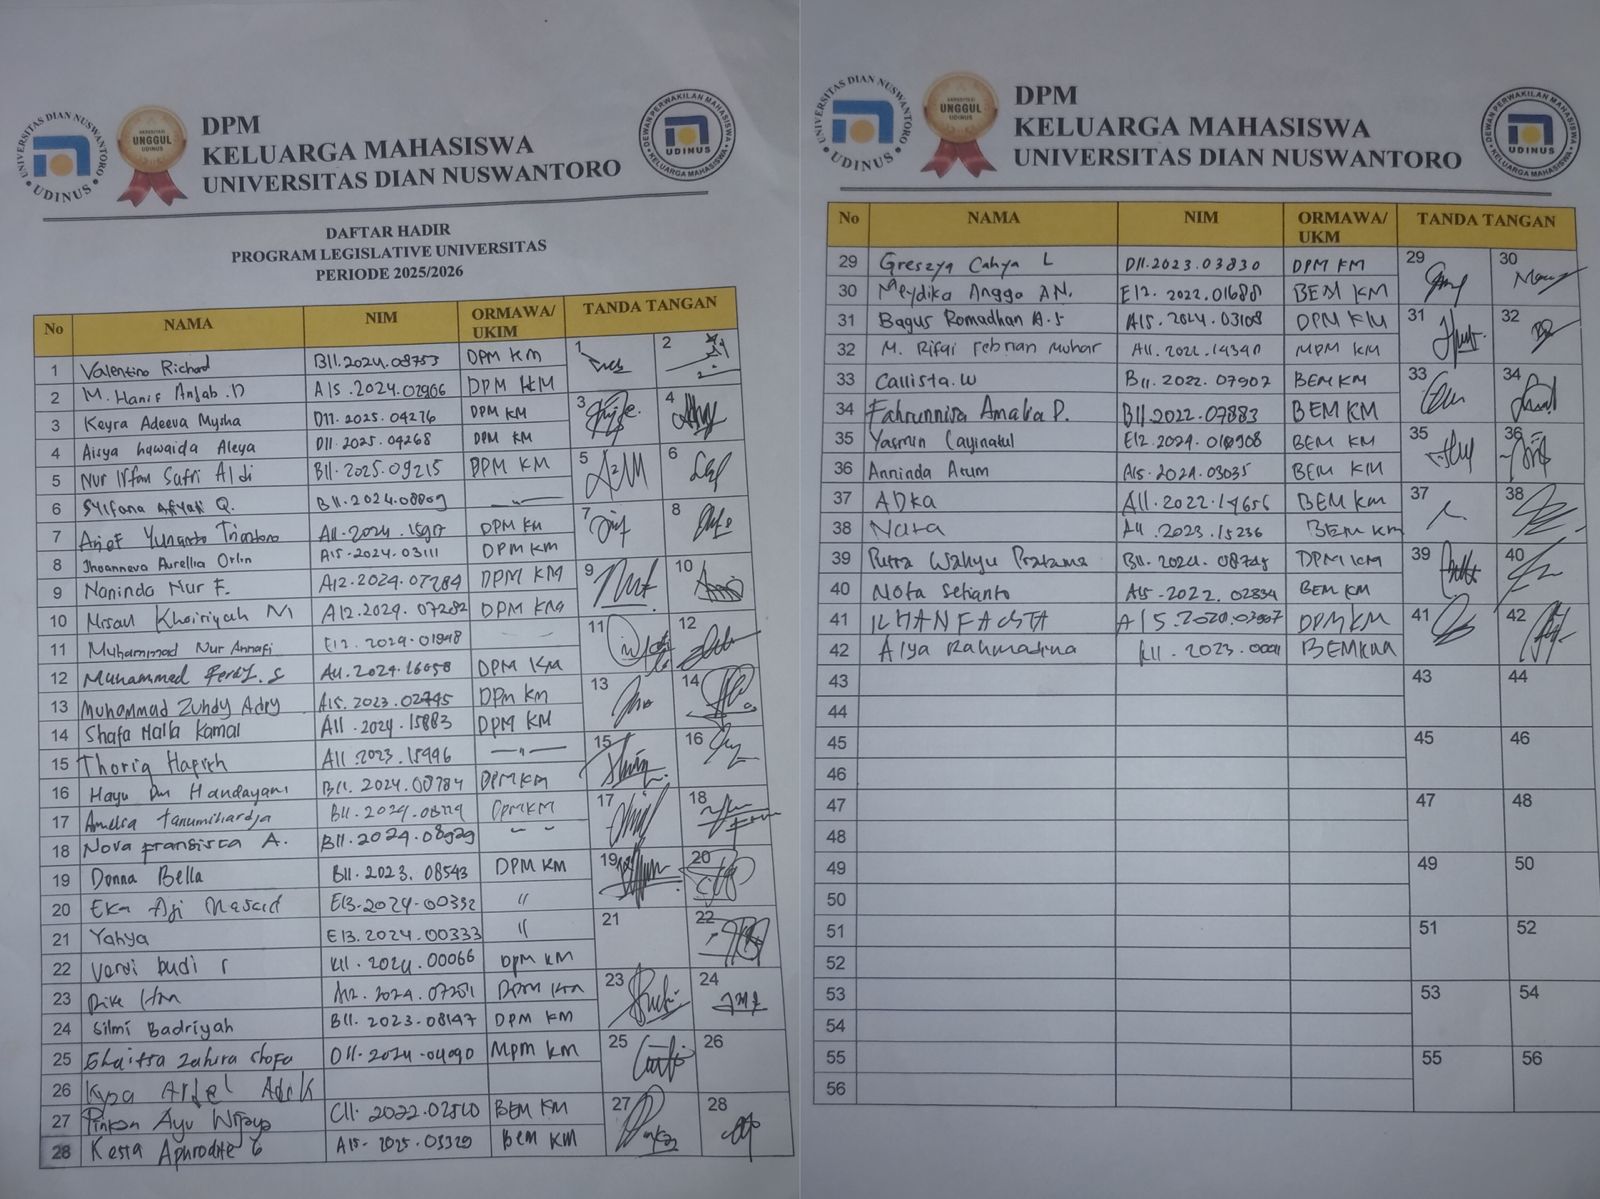 UNIVERSITAS DIAN NUSWANTORO
UDINUS
AKREDITASI
UNGGUL
UDINUS
DPM
KELUARGA MAHASISWA
UNIVERSITAS DIAN NUSWANTORO
DEWAN PERWAKILAN MAHASISWA
UDINUS
KELUARGA MAHASISWA
DAFTAR HADIR
PROGRAM LEGISLATIVE UNIVERSITAS
PERIODE 2025/2026
No NAMA NIM ORMAWA/ UKIM TANDA TANGAN
1 Valentino Richard B11.2024.08753 DPM KM 1
2 M. Hanif A15.2024.02966 DPM KM 2
3 Keyra Adeeva Mysha D11.2025.04276 DPM KM 3
4 Aisya huwaida Aleya D11.2025.04268 DPM KM 4
5 Nur Irfan Safri Aldi B11.2025.09215 DPM KM 5
6 Q. B11.2024.08809 6
7 Arief A11.2024. DPM KM 7
8 Jhoanneva Aurellia Orlin A15.2024.03111 DPM KM 8
9 Naninda Nur F. A12.2024.07284 DPM KM 9
10 Khoiriyah M A12.2024.07282 DPM KM 10
11 Muhammad Nur Annafi E12.2024.01848 11
12 Muhammed Ferdy. S A11.2024.16058 DPM KM 12
13 Muhammad Zuhdy Adry A15.2023.02795 DPM KM 13
14 Shafa Nalla Kamal A11.2024.15883 DPM KM 14
15 Thoriq Hafizh A11.2023.15446 —"— 15
16 Hayu Dwi Handayani B11.2024.08784 DPM KM 16
17 Amelia Tanumihardja B11.2024. DPM KM 17
18 Nova Fransisca A. B11.2024.08929 18
19 Donna Bella B11.2023.08543 DPM KM 19
20 Eka Aji E13.2024.00332 " 20
21 Yahya E13.2024.00333 " 21
22 budi r K11.2024.00066 DPM KM 22
23 A12.2024.07251 DPM KM 23
24 Silmi Badriyah B11.2023.08147 DPM KM 24
25 Ghaitsa Zahira Shofa D11.2024.04090 MPM KM 25
26 26
27 Pinkan Ayu Wijaya C11.2022.02510 BEM KM 27
28 Kesia Aphrodite G A15.2025.03329 BEM KM 28
UNIVERSITAS DIAN NUSWANTORO
UDINUS
AKREDITASI
UNGGUL
UDINUS
DPM
KELUARGA MAHASISWA
UNIVERSITAS DIAN NUSWANTORO
DEWAN PERWAKILAN MAHASISWA
UDINUS
KELUARGA MAHASISWA
No NAMA NIM ORMAWA/ UKM TANDA TANGAN
29 Greszya Cahya L D11.2023.03830 DPM KM 29
30 Meydika Anggo A.N. E12.2022.01688 BEM KM 30
31 Bagus Romadhan A.S A15.2024.03108 DPM KM 31
32 M. Rifqi Febrian Muhar A11.2022.14340 MPM KM 32
33 Callista.W B11.2022.07907 BEM KM 33
34 Fahrunnisa Amalia P. B11.2022.07883 BEM KM 34
35 Yasmin Layinatul E12.2024. BEM KM 35
36 Anninda Arum A15.2024.03035 BEM KM 36
37 ADka A11.2022.14656 BEM KM 37
38 Nara A11.2023.15236 BEM KM 38
39 Putra Wahyu Pratama B11.2024.08745 DPM KM 39
40 Nota Setianto A15.2022.02834 BEM KM 40
41 A15.2020. DPM KM 41
42 Alya Rahmadina K11.2023. BEM KM 42
43 43
44 44
45 45
46 46
47 47
48 48
49 49
50 50
51 51
52 52
53 53
54 54
55 55
56 56